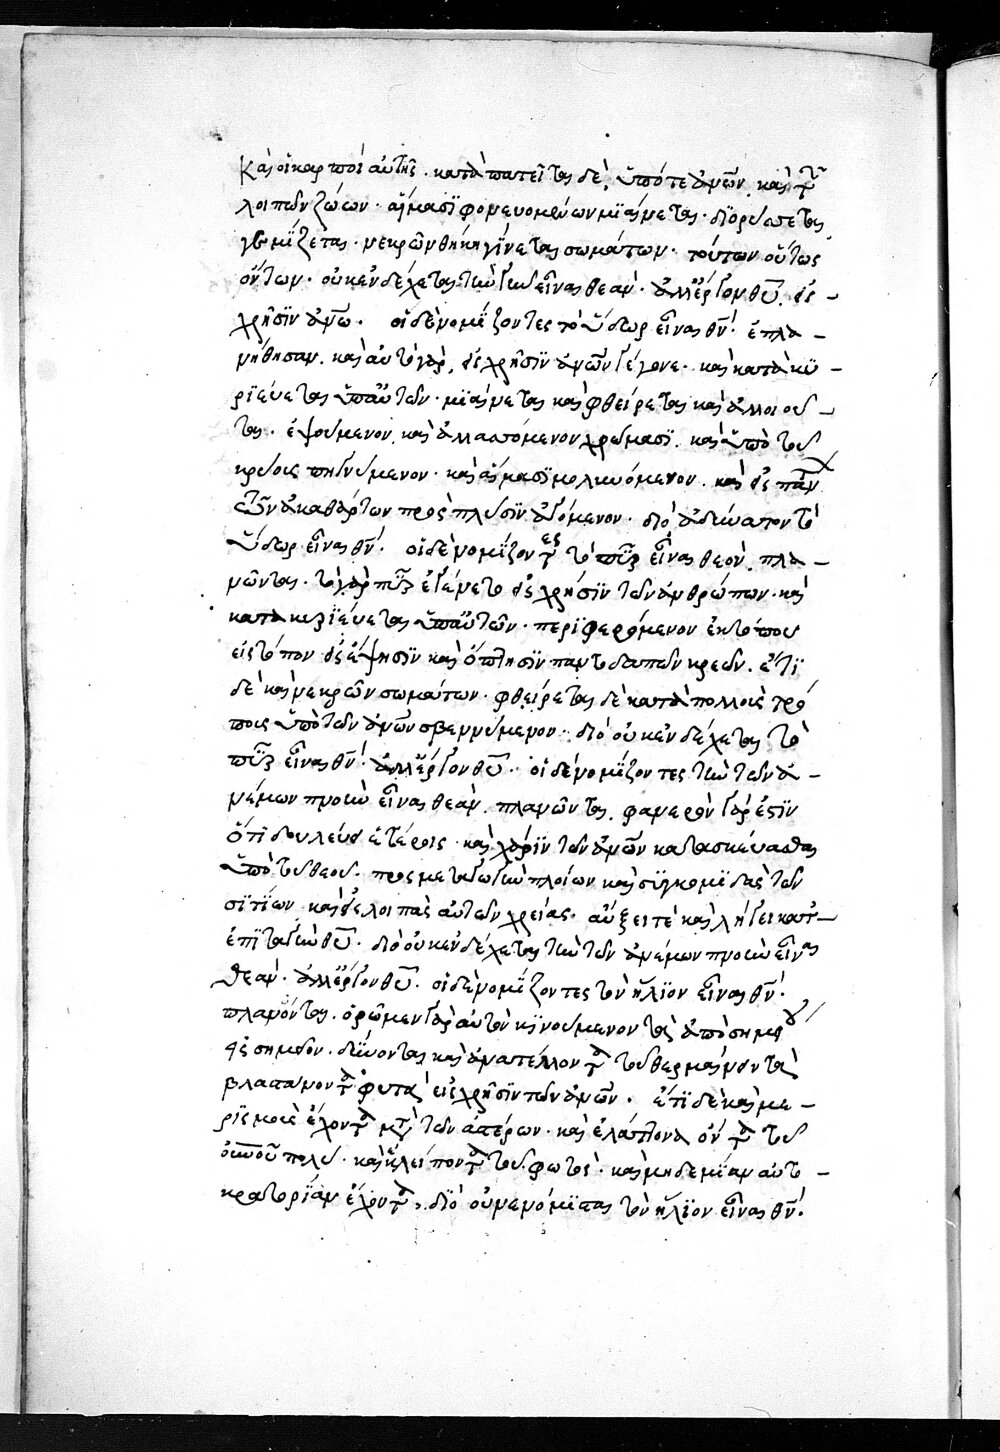 Καὶ οἱ καρποὶ αὐτῆς. καταπατεῖται δὲ, ὑπό τε ἀνῶν καὶ τῶν
λοιπῶν ζώων. αἵμασϊ φονευομένων μϊαίνεται. δϊορύσσεται
γεμΐζεται. νεκρῶν θήκη γίνεται σωμάτων. τούτων οὕτως
ὄντων. οὐκ ἐνδέχεται τὴν γῆν εἶναι θεάν. ἀλλ' ἔργον θῦ. εἰς –
χρῆσϊν ἀνῶν. οἱ δὲ νομίζοντες τὸ ὕδωρ εἶναι θν̄. ἐπλα –
νήθησαν. καὶ αὐτὸ γὰρ, εἰς χρῆσϊν ἀνῶν γέγονε. καὶ κατακϋ –
ρϊεύεται ὑπ' αὐτῶν. μϊαίνεται καὶ φθείρεται καὶ ἀλλοιοῦ –
ται. ἑψούμενον καὶ ἀλλασσόμενον χρώμασϊ. καὶ ὑπὸ τοῦ
κρύους πηγνύμενον. καὶ αἵμασϊ μολυνόμενον. καὶ εἰς πάντων
τῶν ἀκαθάρτων πρὸς πλύσϊν ἀγόμενον. διὸ ἀδύνατον τὸ
ὕδωρ εἶναι θν̄. οἱ δὲ νομΐζοντες τὸ πῦρ εἶναι θεὸν, πλα –
νῶνται. τὸ γὰρ πῦρ ἐγένετο εἰς χρήσϊν τῶν ἀνθρώπων. καὶ
κατακυρϊεύεται ὑπ' αὐτῶν. περϊφερόμενον ἐκ τόπου
εἰς τόπον εἰς ἕψησϊν καὶ ὄπτησϊν παντοδαπῶν κρεῶν. ἔτϊ
δὲ καὶ νεκρῶν σωμάτων. φθείρεται δὲ κατὰ πολλοὺς τρό
πους ὑπὸ τῶν ἀνῶν σβεννύμενον. διὸ οὐκ ἐνδέχεται τὸ
πῦρ εἶναι θν̄. ἀλλ' ἔργον θῦ. οἱ δὲ νομΐζοντες τὴν τῶν ἀ –
νέμων πνοὴν εἶναι θεὰν, πλανῶνται. φανερὸν γάρ ἐστϊν
ὅτϊ δουλεύει ἑτέροις. καὶ χάρϊν τῶν ἀνῶν κατασκεύασται
ὑπὸ τοῦ θεοῦ. πρὸς μεταγωγὴν πλοίων καὶ συγκομϊδὰς τῶν
σϊτίων καὶ εἰς λοιπὰς αὐτῶν χρείας. αὔξει τὲ καὶ λήγει κατ' –
ἐπϊταγὴν θῦ. διὸ οὐκ ἐνδέχεται τὴν τῶν ἀνέμων πνοὴν εἶναι
θεάν. ἀλλ' ἔργον θῦ. οἱ δὲ νομΐζοντες τὸν ἥλϊον εἶναι θν̄.
πλανόνται. ὁρῶμεν γὰρ αὐτὸν κϊνούμενον καὶ ἀπὸ σημείου
εἰς σημεῖον. δύνοντα καὶ ἀνατέλλοντα τοῦ θερμαίνειν τὰ
βλαστάνοντα φυτὰ εἰς χρῆσϊν τῶν ἀνῶν. ἔτϊ δὲ καὶ με –
ρϊσμοὺς ἔχοντα μετὰ τῶν ἀστέρων. καὶ ἐλάττονα ὄντα τοῦ
οὐνοῦ πολύ. καὶ ἐκλείποντα τοῦ φωτός. καὶ μηδεμΐαν αὐτο –
κρατορϊαν ἔχοντα. δϊὸ οὐ νενόμϊσται τὸν ἥλϊον εἶναι θν̄.